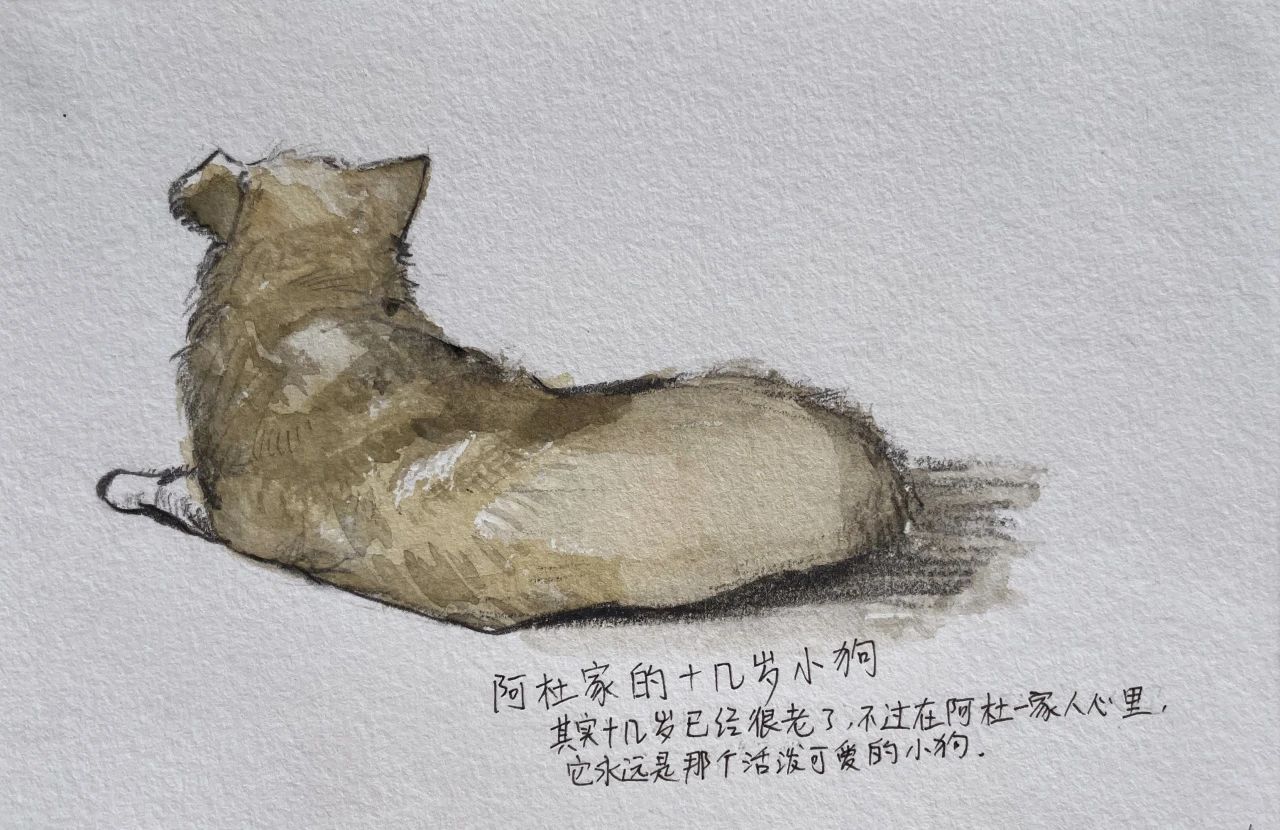 阿杜家的十几岁小狗
其实十几岁已经很老了,不过在阿杜一家人心里,
它永远是那个活泼可爱的小狗.